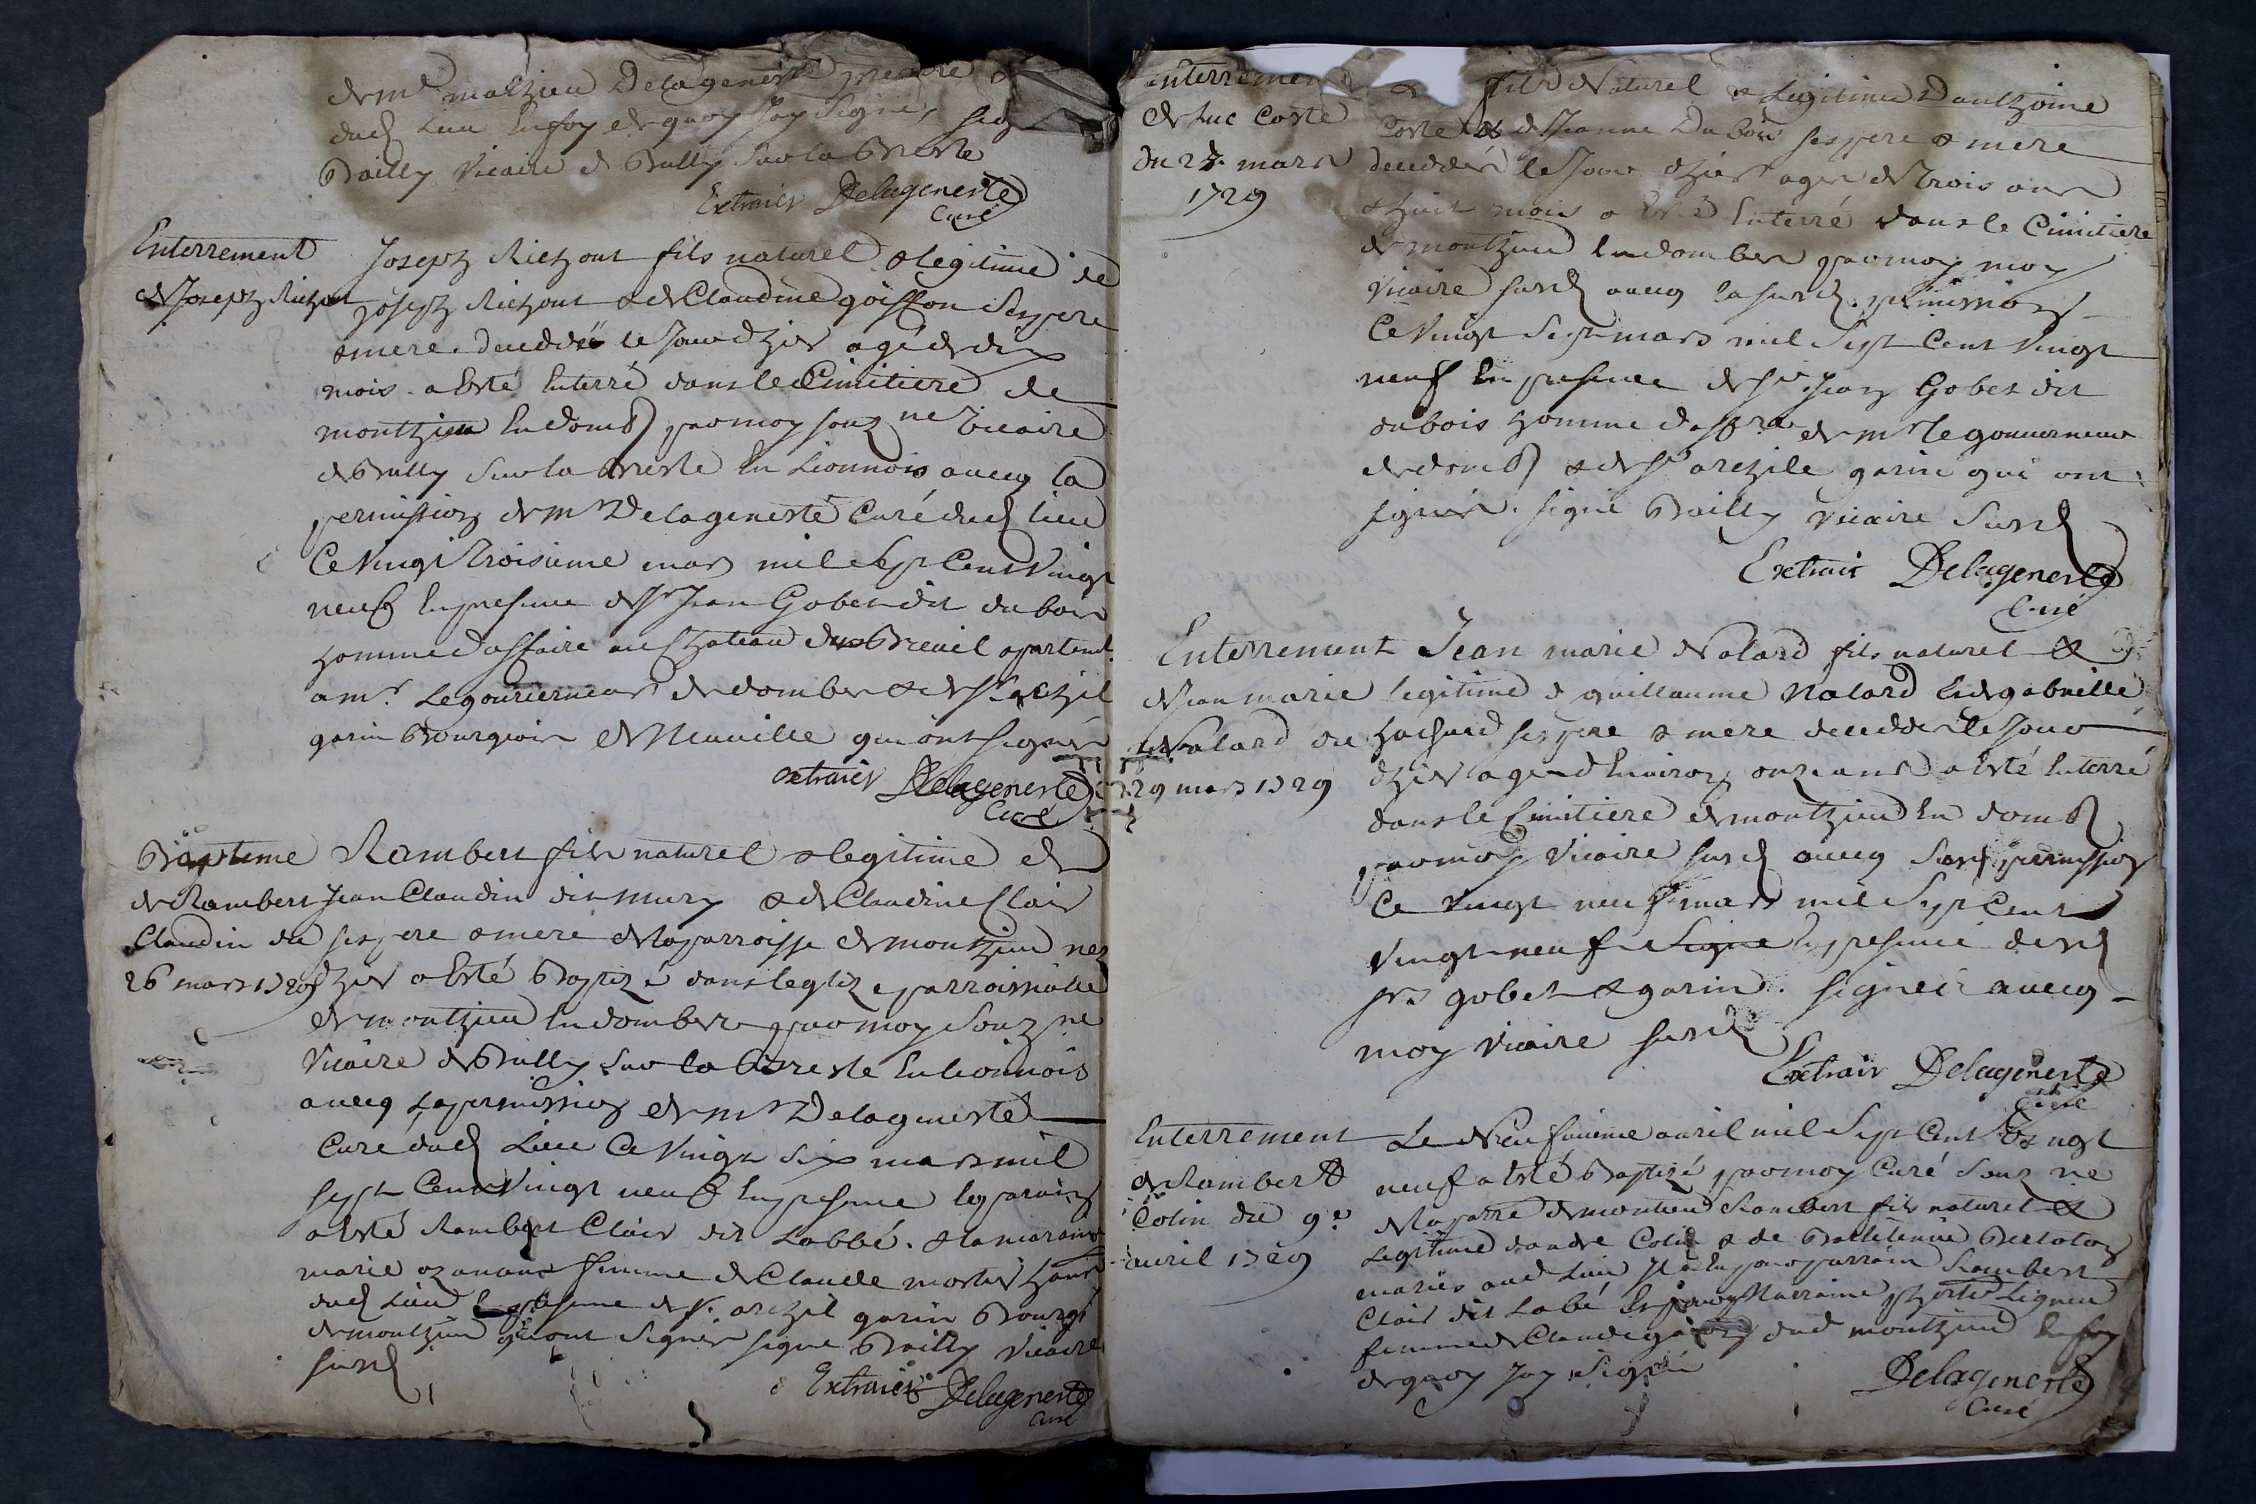 de mr mathieu Delageneste prestre
dud lieu En foy de quoy Jay Signé,
Bailly Vicaire de Bully Sur la Bresle
Extraict Delageneste
Curé
Enterrement
de Joseph Richont
Joseph Richont fils naturel & legitime de
joseph Richont & de Claudine goiffon Ses pere
& mere decedé le Jour dhier agé de dix
mois a Esté Enterré dans le Cimitiere de
monthieu En domb par moy souz ne Vicaire
de Bully Sur la Bresle En Lionnois avecq la
permission de mr Delageneste Curé dud lieu
Ce Vingt Troisieme mars mil Sept Cent Vingt
neuf En presence de Sr Jean Gobet dit du bois
homme daffaire au Chateau du Breuil apartent
a mr. Le gouverneur de dombe & de Sr archil
garin Bourgeois de Neuville qui ont Signé
extraict Delageneste
Curé
Bapteme
de Rambert
Claudin du
26 mars 1729
Rambert fils naturel & legitime de
Jean Claudin dit mury & de Claudine Clair
ses pere & mere de la parroisse de monthieu nez
dhier a Esté Baptizé dans leglize parroissialle
de monthieu En dombe par moy Souz ne
Vicaire de Bully Sur la Bresle En lionnois
avecq la permission de mr Delageneste
Curé dud Lieu Ce Vingt Six mars mil
sept Cent Vingt neuf En presence le parain
a Esté Rambert Clair dit Labbé. & la maraine
marie ozanant femme de Claude mortier
dud Lieu En presence de Sr. archil garin Bourgs
de monthieu qui ont Signé signe Bailly Vicaire
susd
Extraict Delageneste
Curé
Enterrement
de Luc Coste
du 27 mars
1729
fils Naturel & Legitime Danthoine
Coste & de Jeanne Dubois ses pere & mere
decedé le Jour dhier agé de Trois ans
& huit mois a Esté Enterré dans le Cimitiere
de monthieu En dombe par moy moy
Vicaire susd avecq la susd. permission
Ce Vingt Sept mars mil Sept Cent Vingt
neuf En presence de Sr. Jean Gobet dit
dubois homme daffre de mr le gouverneur
de domb & de Sr archile garin qui ont
signés. signé Bailly Vicaire Susd
Extrait Delageneste
Curé
Enterrement
de Jean marie
Nalard du
29 mars 1729
Jean marie Nalard fils naturel &
legitime de guillaume Nalard Et de gabrielle
ses pere & mere decedé le Jour
dhier agé dEnviron onze ans a Esté Enterré
dans le Cimitiere de monthieu En domb
par moy Vicaire susd avecq Susd permission
Ce Vingt neuf mars mil Sept Cent
Vingt neuf Signé En presence desd
srs gobet & garin. signéz avecq
moy Vicaire susd
Extrait Delageneste
Curé
Enterrement
de Rambert
Colin du 9e
avril 1729
Le Neufvieme avril mil Sept Cent Vingt
neuf a Esté Baptizé par moy Curé Souz ne
de la parre de montieu Rambert fils naturel &
Legitime dandre Colin & de
mariés aud Lieu Il a Eu pour parrain Rambert
Clair dit Labé Et pour Marraine
femme de Claude dud monthieu En foy
de quoy Jay Signé
Delageneste
Curé